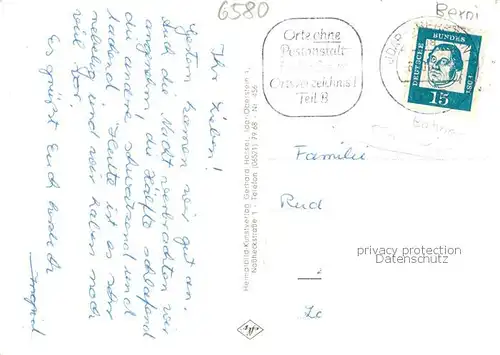 6580
Berni
Ihr Lieben!
Gestern kamen wir gut an.
Auch die Nacht verbrachten wir
angenehm, die Hälfte schlafend
die andere schwatzend und
lachend. Heute ist es sehr
neblig und wir haben noch
viel vor.
Es grüßt Euch herzlich
Ingrid
Heimatbild-Kunstverlag Gerhard Hansel, Idar-Oberstein 1
Naßheckstraße 1 - Telefon (06781) 79 68 Nr. 456
Orte ohne
Postanstalt
Ortsverzeichnis!
Teil B
DEUTSCHE BUNDES
15
Familie
Rud
privacy protection
Datenschutz